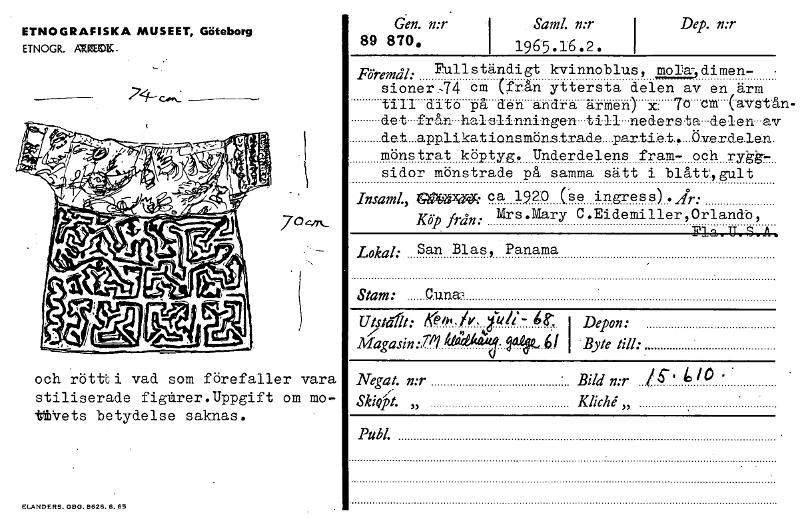 ETNOGRAFISKA MUSEET, Göteborg
ETNOGR.
74 cm
70 cm
och rött i vad som förefaller vara
stiliserade figurer. Uppgift om mo-
tivets betydelse saknas.
ELANDERS. GBG. 8625. 6. 65
Gen. n:r Saml. n:r Dep. n:r
89 870. 1965.16.2.
Föremål: Fullständigt kvinnoblus, mola, dimen-
sioner 74 cm (från yttersta delen av en ärm
till dito på den andra ärmen) x 70 cm (avstån-
det från halslinningen till nedersta delen av
det applikationsmönstrade partiet. Överdelen
mönstrat köptyg. Underdelens fram- och rygg-
sidor mönstrade på samma sätt i blått, gult
Insaml., ca 1920 (se ingress). År:
Köp från: Mrs. Mary C. Eidemiller, Orlando,
Fla. U.S.A.
Lokal: San Blas, Panama
Stam: Cuna
Utställt: Kem. tv. juli - 68. Depon:
Magasin: TM klädhäng. galge 61 Byte till:
Negat. n:r Bild n:r 15.610.
Skiopt. „ Kliché „
Publ.